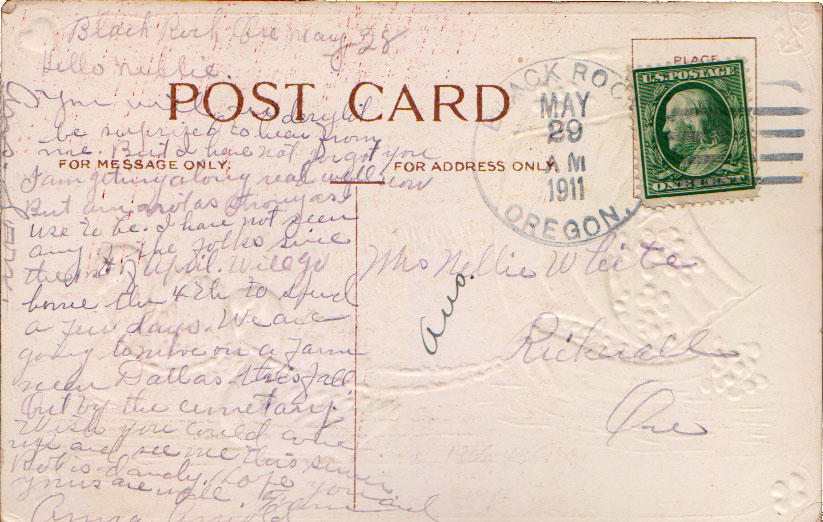 Black Rock Ore May 28
Hello Nellie.
POST CARD
I gess you will
be surprized to hear from
me. But I have not forgot you
FOR MESSAGE ONLY.
I am getting along real well now
But am not as strong as I
use to be. I have not seen
any of the folks since
the 1st of April. Will go
home the 4th to spend
a few days. We are
going to move on a farm
near Dallas this fall
Out by the cemetary.
Wish you could come
up and see me this summer
Rob is dandy. hope you and
yours are well. From
Anna Arnold
FOR ADDRESS ONLY
PLACE
U.S. POSTAGE
ONE CENT
BLACK ROCK
MAY
29
A M
1911
OREGON.
Mrs Nellie White
Ans.
Rickreall
Ore